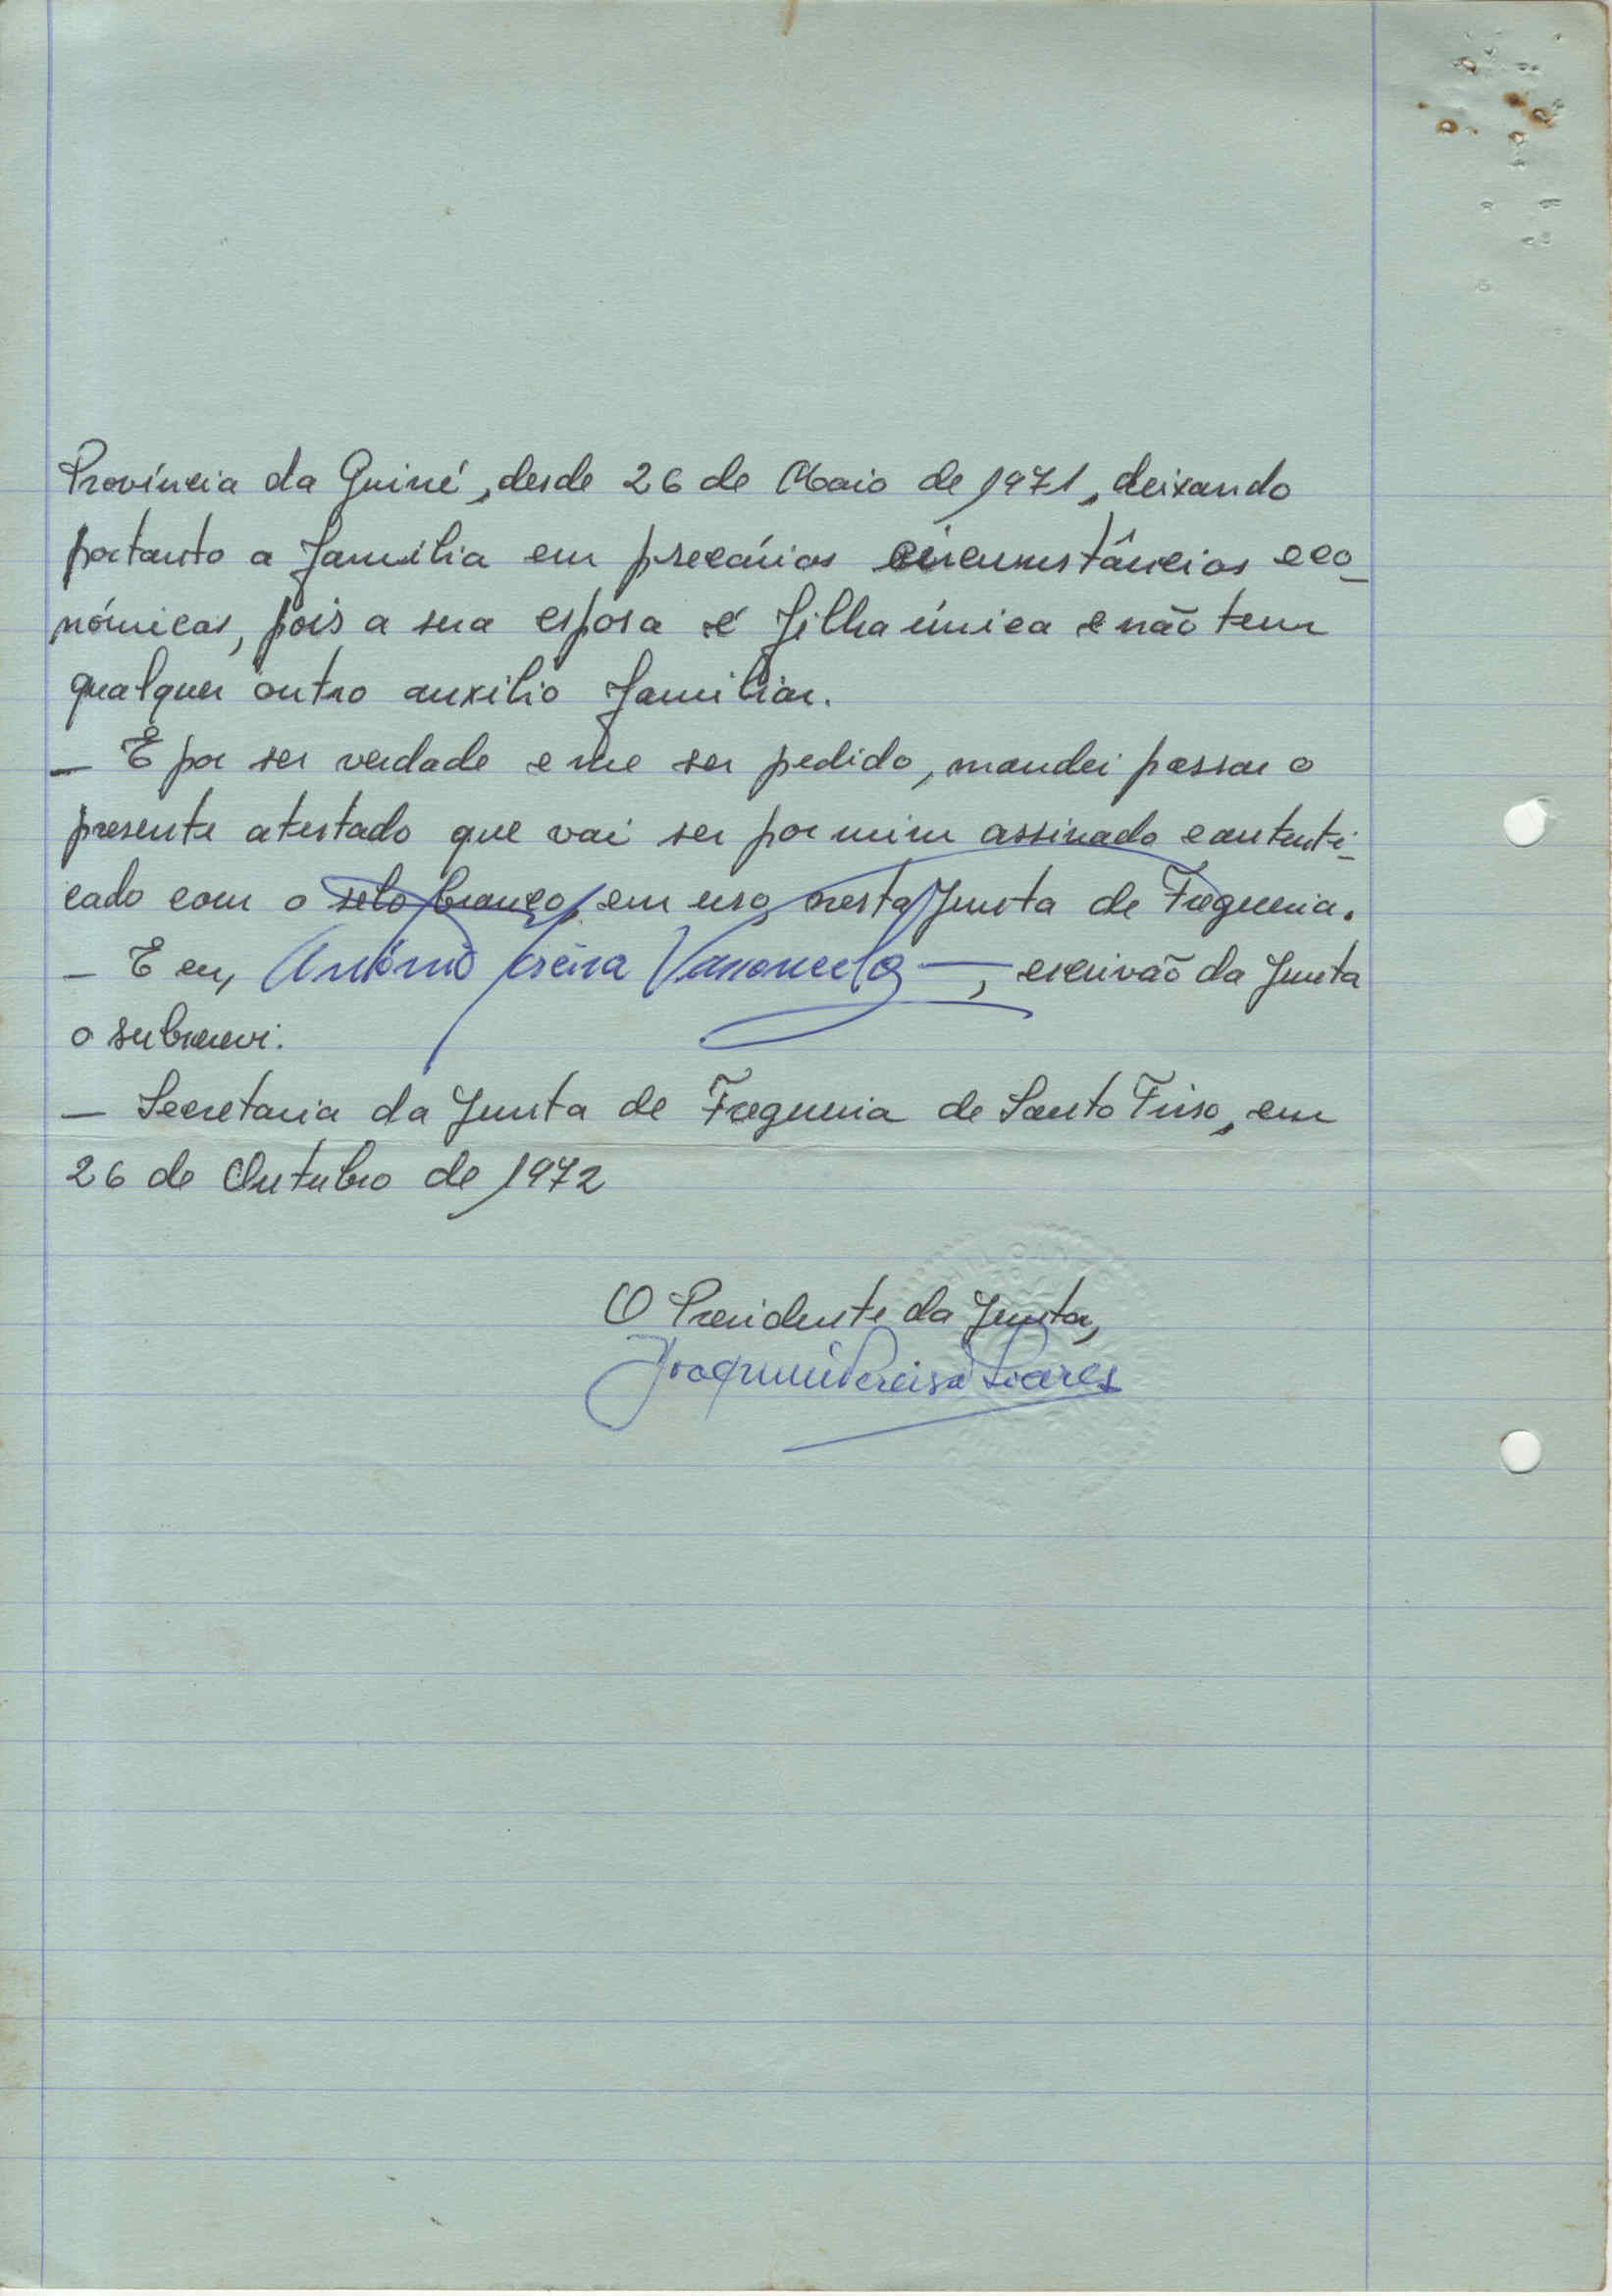 Província da Guiné, desde 26 de Maio de 1971, deixando
portanto a família em precárias circumstâncias eco_
nómicas, pois a sua esposa é filha única e não tem
qualquer outro auxilio familiar.
_ E por ser verdade e me ser pedido, mandei passar o
presente atestado que vai ser por mim assinado e autenti_
cado com o selo branco, em uso nesta Junta de Freguesia.
_ E eu, António Vasconcelos, escrivão da Junta
o subscrevi.
_ Secretaria da Junta de Freguesia de Santo Tirso, em
26 de Outubro de 1972
O Presidente da Junta,
Joaquim Pereira Soares